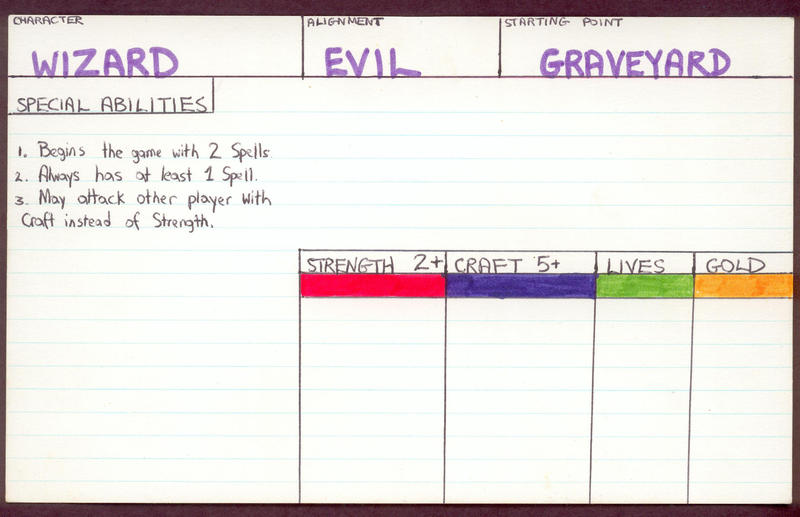 CHARACTER ALIGNMENT STARTING POINT
WIZARD EVIL GRAVEYARD
SPECIAL ABILITIES
1. Begins the game with 2 Spells
2. Always has at least 1 Spell.
3. May attack other player with
Craft instead of Strength.
STRENGTH 2+ CRAFT 5+ LIVES GOLD